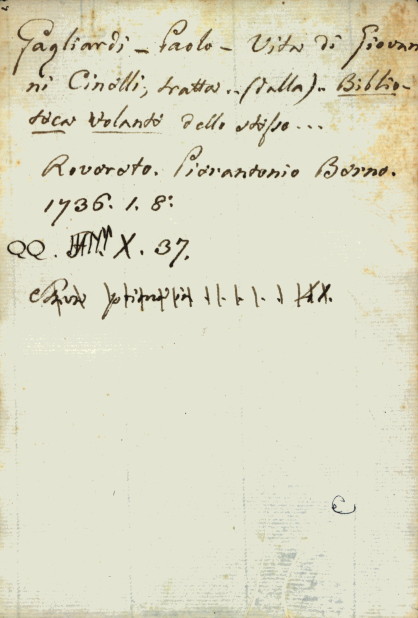 Gagliardi - Paolo - Vita di Giovan
ni Cinelli, tratta .. (dalla) .. Biblio-
teca Volante dello stesso ...
Rovereto. Pierantonio Berno.
1736. 1. 8:
QQ. X. 37.
C